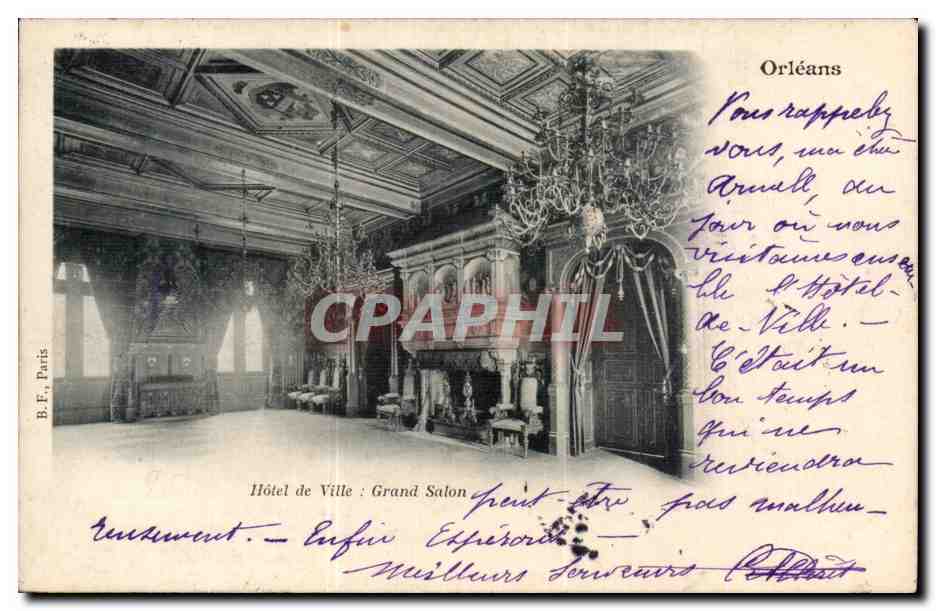 Orléans
Vous rappelez
vous, ma chère
du
jour où nous
visitâmes ensem
ble l'Hôtel-
de-Ville. —
C'était un
bon temps
qui ne
reviendra
B. F., Paris
CPAPHIL
Hôtel de Ville : Grand Salon
peut-être pas malheu-
reusement. — Enfin Espérons —
Meilleurs Souvenirs